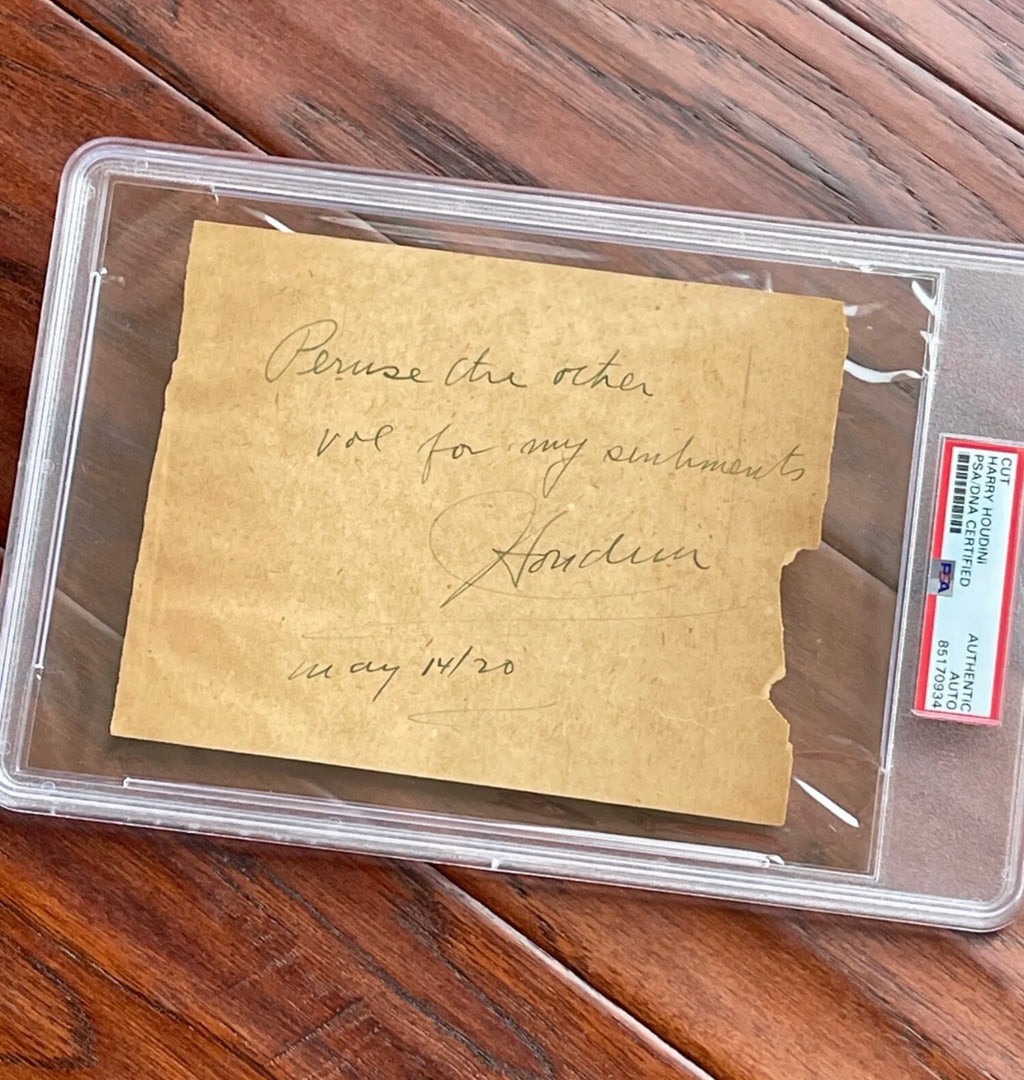 Peruse the other
vol for my sentiments
Houdini
may 14/20
CUT
HARRY HOUDINI
PSA/DNA CERTIFIED
PSA
AUTHENTIC
AUTO
85170934